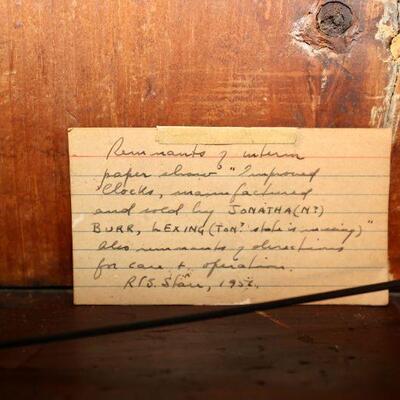 Remnants of intern
paper show "Improved
Clocks, manufactured
and sold by JONATHA(N?)
BURR, LEXING(TON? state is missing)"
Also remnants of directions
for care & operation.
R.S. Starr, 195